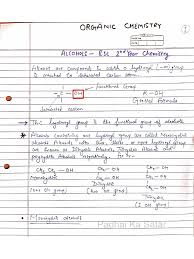 ORGANIC CHEMISTRY
ALCOHOLS - BSC 2nd Year Chemistry
Alcohols are compounds in which a hydroxyl (-OH) group
is attached to saturated carbon atom.
Functional Group
-C-OH R-OH
General Formula
Saturated carbon
→ The hydroxyl group is the functional group of alcohols
Alcohols containing one hydroxyl group are called Monohydric
Alcohols. Alcohols with two, three, or more hydroxyl group
are known as Dihydric Alcohols, Trihydric Alcohols and
polyhydric Alcohols respectively. For ex-
CH3-OH CH2-OH CH2-OH
Monohydric CH2-OH CH-OH
(one OH group) Dihydric CH2-OH
(two OH group) Trihydric
(three OH group)
Monohydric Alcohols
Padhai Ka Safar